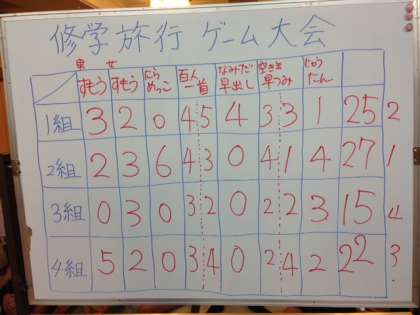 修学旅行 ゲーム大会
男 女
すもう すもう にらめっこ 百人一首 なみだ早出し 空き缶早つみ じゅうたん
1組 3 2 0 4 5 4 3 3 1 25 2
2組 2 3 6 4 3 0 4 1 4 27 1
3組 0 3 0 3 2 0 2 2 3 15 4
4組 5 2 0 3 4 0 2 4 2 22 3